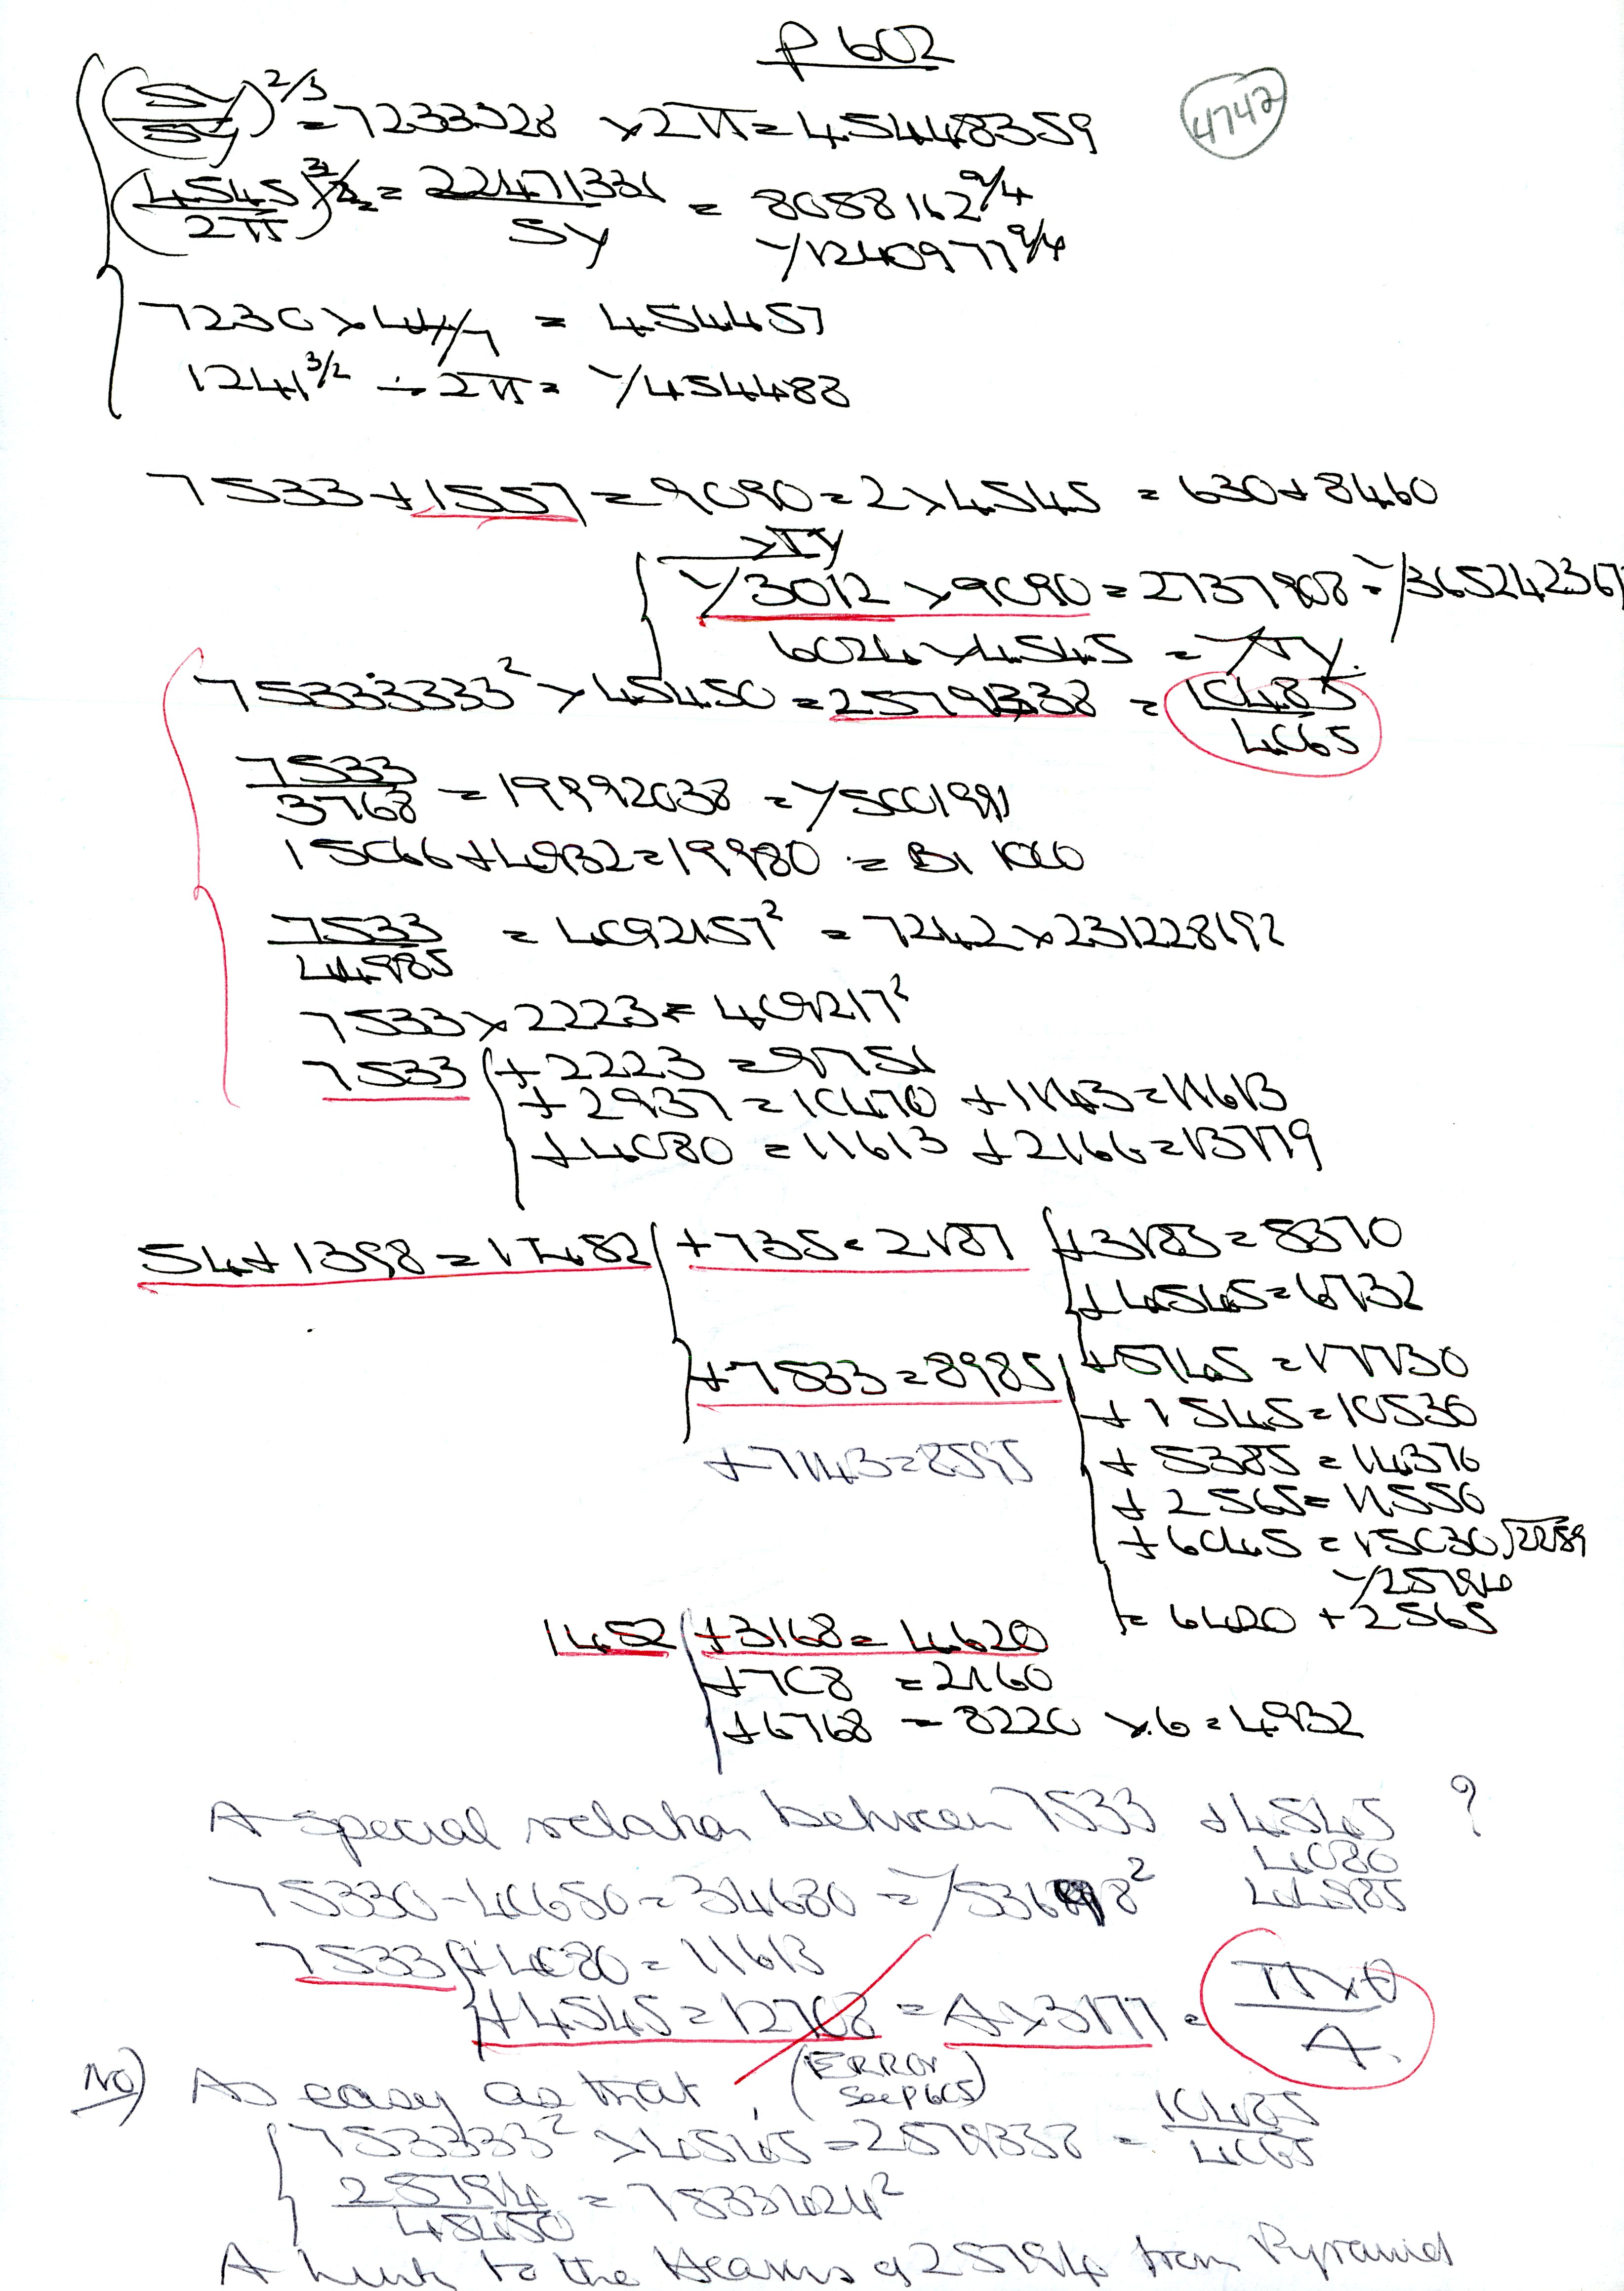 P 602
4742
(SY/5Y)^2/3 = 7233328 × 2π = 45448359
(4545/2π)^3/2 = 22471331/5Y = 8088162^9/4
Y/1240977^9/4
7230 × 44/7 = 454457
1241^3/2 ÷ 2π = Y/454488
7533 + 1557 = 9090 = 2 × 4545 = 630 + 8460
Y/3012 × 9090 = 2737908 = Y/36524236
6024 × 4545 =
75333333² × 45450 = 25791338 = 10485/4065
7533/3768 = 19992038 = Y/5001991
15066 + 4932 = 19980 = B1 1000
7533/44985 = 4092157² = 7242 × 231228192
7533 × 2223 = 409217²
7533 + 2223 = 9756
+ 2937 = 10470 + 1143 = 11613
+ 4080 = 11613 + 2166 = 13779
54 + 1398 = 1452 + 735 = 2187 + 3183 = 8370
+ 4545 = 6732
+ 7533 = 8985 + 8145 = 17130
+ 1545 = 10530
+ 7143 = 8595
+ 5385 = 14370
+ 2565 = 11550
+ 6045 = 15030 √2259
Y/25794
= 6420 + 2565
1452 + 3168 = 4620
+ 708 = 2160
+ 6768 = 8220 × 6 = 4932
A special relation between 7533 + 4545 ?
4080
75330 - 40650 = 34680 = Y/53698² 44985
7533 + 4080 = 11613
+ 4545 = 12708 = A × 3177 = π × θ/A.
No) As easy as that, (ERROR
See P 605)
753333² × 4545 = 2579338 = 10485/4065
25794/45450 = 7533424²
A link to the Years of 25794 from Pyramid